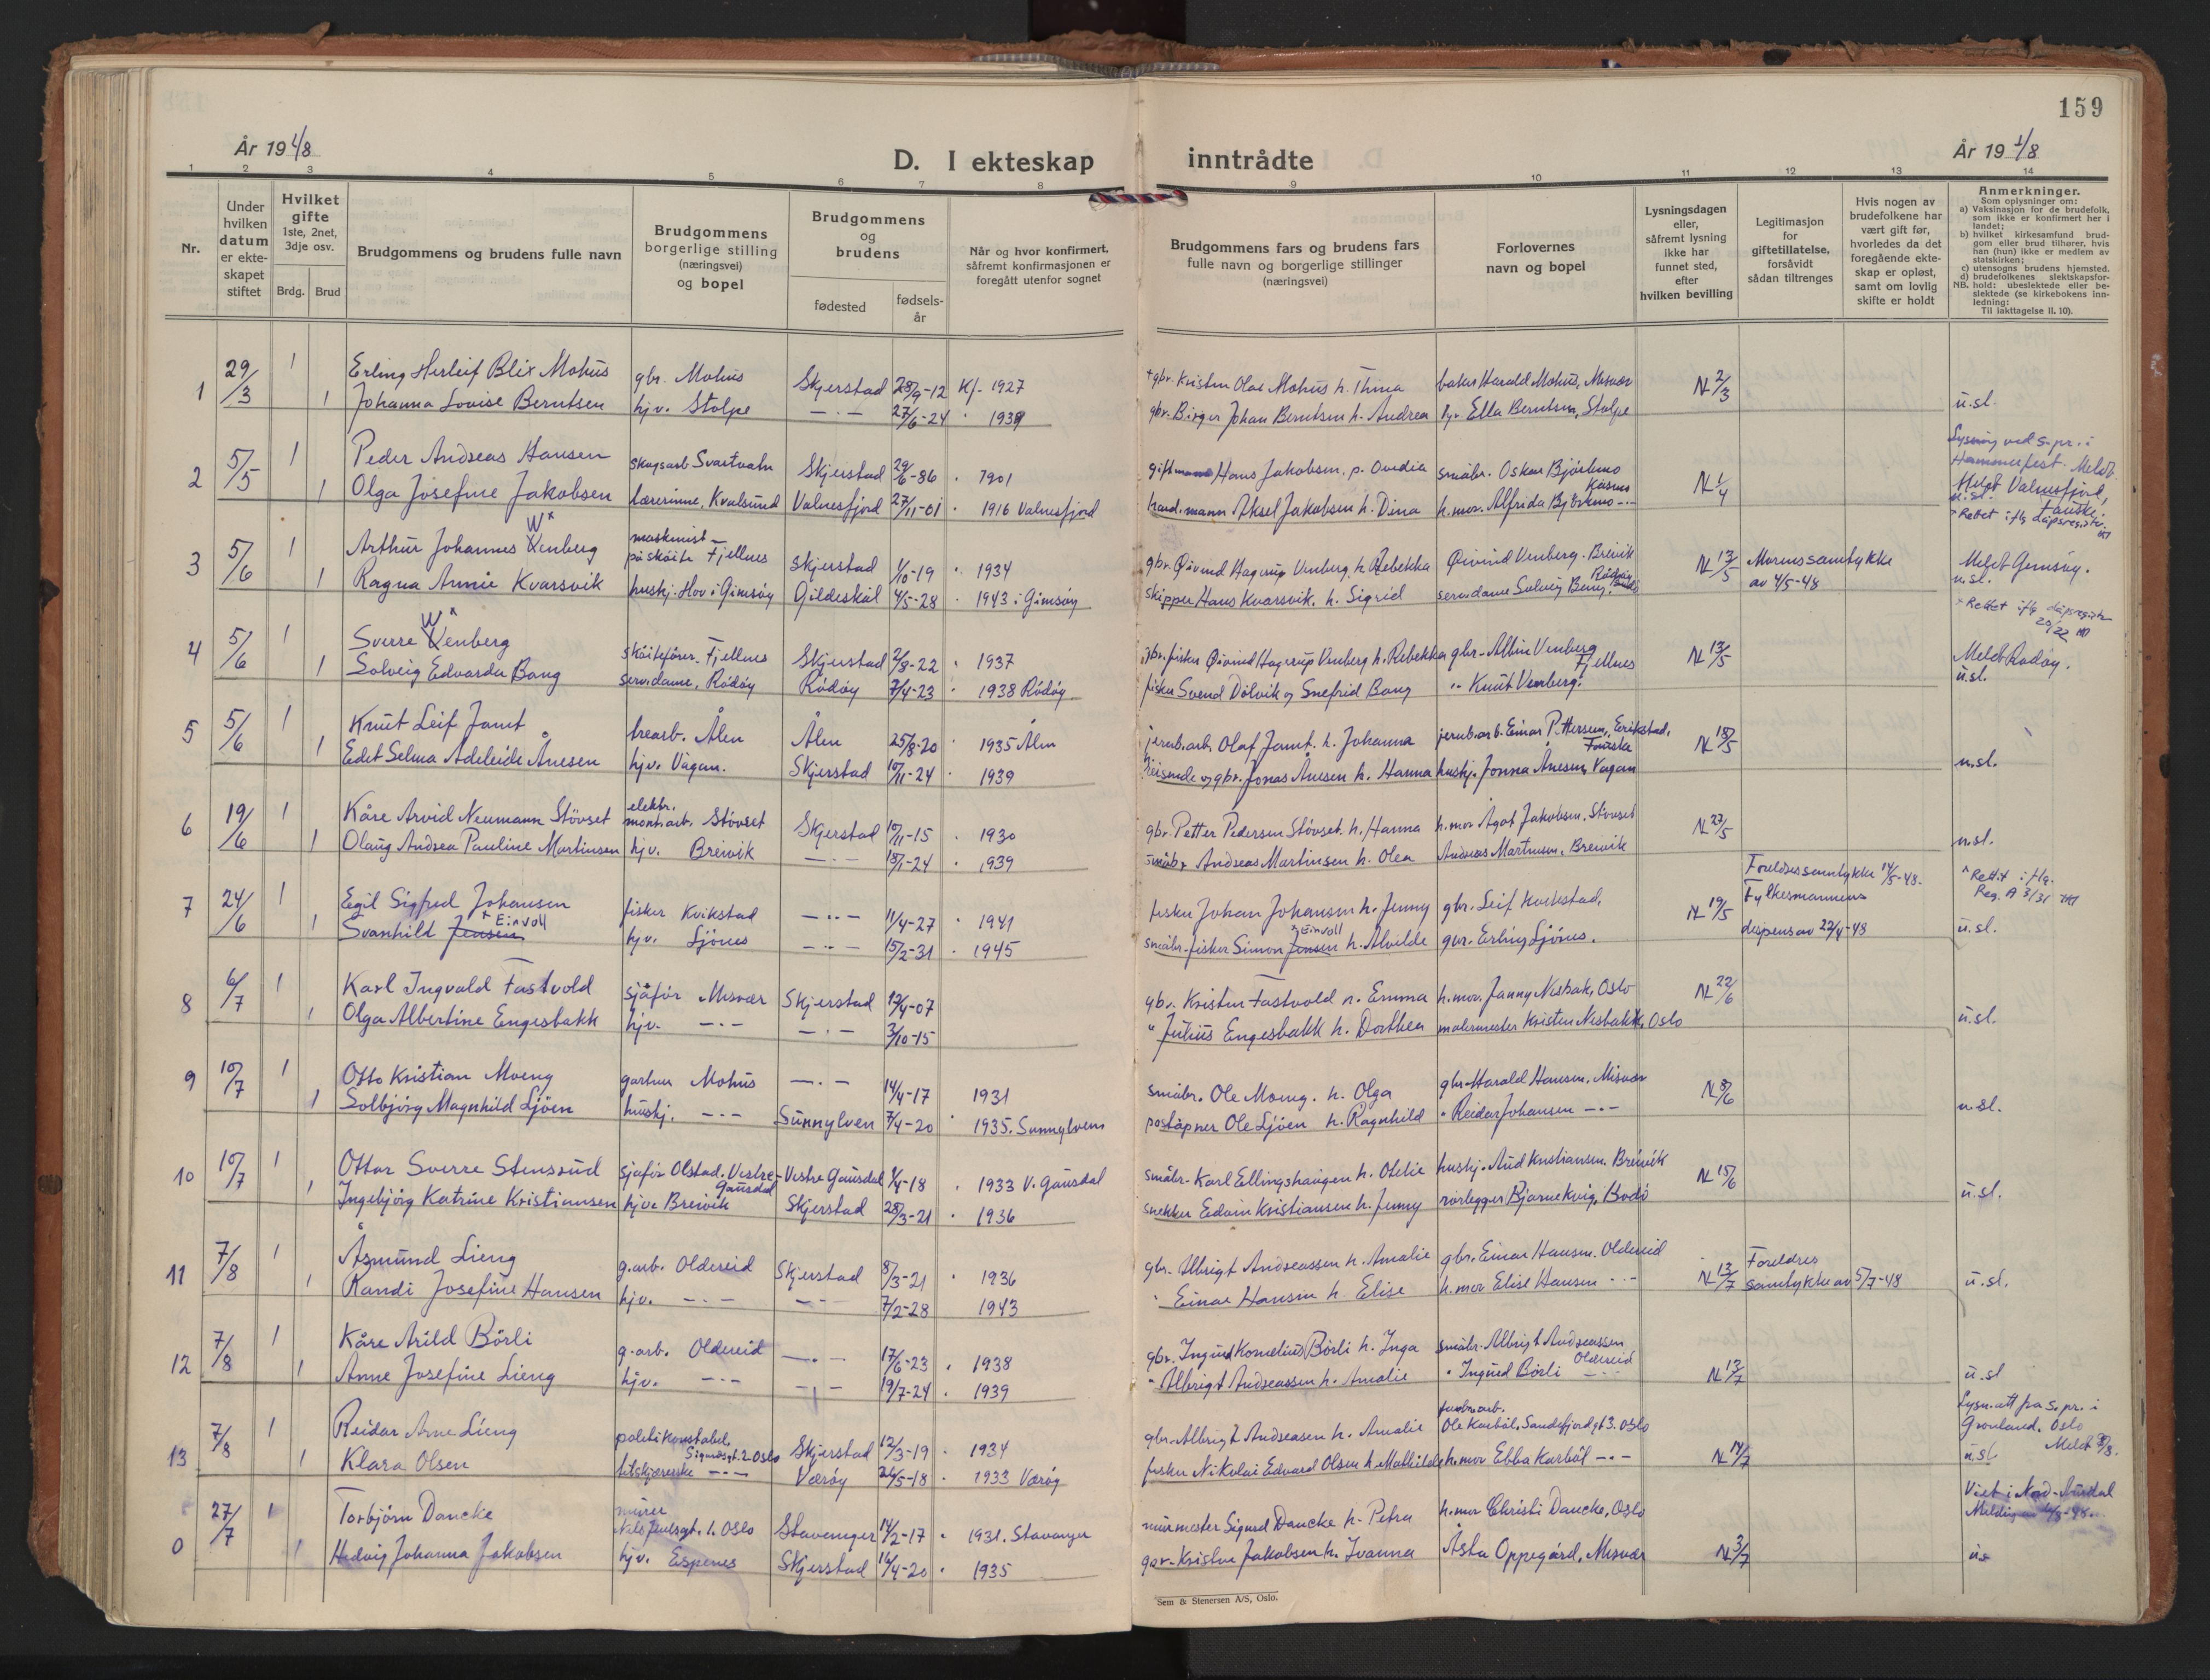 159
År 1948
D. I ekteskap inntrådte
År 1948
1 2 3 4 5 6 7 8 9 10 11 12 13 14
Nr.
Under hvilken datum er ekteskapet stiftet
Hvilket gifte 1ste, 2net, 3dje osv.
Brdg. Brud
Brudgommens og brudens fulle navn
Brudgommens borgerlige stilling (næringsvei) og bopel
Brudgommens og brudens
fødested
fødsels-år
Når og hvor konfirmert, såfremt konfirmasjonen er foregått utenfor sognet
Brudgommens fars og brudens fars fulle navn og borgerlige stillinger (næringsvei)
Forlovernes navn og bopel
Lysningsdagen eller, såfremt lysning ikke har funnet sted, efter hvilken bevilling
Legitimasjon for giftetillatelse, forsåvidt sådan tiltrenges
Hvis nogen av brudefolkene har vært gift før, hvorledes da det foregående ekteskap er opløst, samt om lovlig skifte er holdt
Anmerkninger.
Som oplysninger om:
a) Vaksinasjon for de brudefolk, som ikke er konfirmert her i landet;
b) hvilket kirkesamfund brudgom eller brud tilhører, hvis han (hun) ikke er medlem av statskirken;
c) utensogns brudens hjemsted.
d) brudefolkenes slektskapsforhold: ubeslektede eller beslektede (se kirkebokens innledning:
NB.
Til iakttagelse II. 10).
1 29/3 1 Erling Herleif Blix Mohus gbr. Mohus Skjerstad 28/9-12 Kf. 1927 + gbr. Kristen Olae Mohus h. Thina baker Harald Mohus, Misvær N 2/3
1 Johanna Lovise Berntsen hjv. Stolpe -"- 27/6-24 " 1939 gbr. Birger Johan Berntsen h. Andrea Ella Berntsen, Stolpe u.sl.
2 5/5 1 Peder Andreas Hansen skogsarb Svartvatn Skjerstad 29/6-86 " 1901 Hans Jakobsen, p. Ovedia småbr. Oskar Bjørkmo Kåsmo N 1/4 Lysning ved s.pr. i Hammerfest. Meldt
1 Olga Josefine Jakobsen lærerinne, Kvalsund Valnesfjord 27/11-01 " 1916 Valnesfjord hand.mann Aksel Jakobsen h. Dina h.mor. Alfrida Bjørkmo -"- Meldt Valnesfjord, Fauske. u.sl.
3 5/6 1 Arthur Johannes Venberg Wx maskinist på skøite Fjellnes Skjerstad 1/10-19 " 1934 gbr. Øivind Hagerup Venberg h. Rebekka Øivind Venberg. Breivik N 13/5 Morens samtykke av 4/5-48 x Rettet iflg dåpsregistr.
1 Ragna Annie Kvarsvik hushj. Hov i Gimsøy Gildeskål 4/5-28 " 1943 i Gimsøy skipper Hans Kvarsvik, h. Sigrid serv.dame Solveig Bang, Rødøy Meldt Gimsøy. u.sl.
4 5/6 1 Sverre Venberg Wx skøitefører. Fjellnes Skjerstad 2/8-22 " 1937 gbr. fisker Øivind Hagerup Venberg h. Rebekka gbr. Albin Venberg Fjellnes N 13/5 x Rettet iflg dåpsregister
1 Solveig Edvarda Bang serv.dame, Rødøy Rødøy 7/4-23 " 1938 Rødøy fisker Svend Dolvik og Snefrid Bang " Knut Venberg. Meldt Rødøy. u.sl.
5 5/6 1 Knut Leif Jamt trearb. Ålen Ålen 25/8-20 " 1935 Ålen jernb.arb. Olaf Jamt. h. Johanna jernb.arb. Einar Pettersen, Erikstad, Fauske N 18/5
1 Edet Selma Adeleide Ånesen hjv. Vågan. Skjerstad 10/11-24 " 1939 gbr. Jonas Ånesen h. Hanna hushj. Jonna Ånesen, Vågan u.sl.
6 19/6 1 Kåre Arvid Neumann Støvset elektr. mont.arb. Støvset Skjerstad 10/11-15 " 1930 gbr. Petter Pedersen Støvset. h. Hanna h.mor Ågot Jakobsen, Støvset N 27/5
1 Olaug Andrea Pauline Martinsen hjv. Breivik -"- 18/1-24 " 1939 småbr Andreas Martinsen h. Olea Andreas Martinsen, Breivik u.sl.
7 24/6 1 Egil Sigfred Johansen fisker Kvikstad -"- 11/4-27 " 1941 fisker Johan Johansen h. Jenny gbr. Leif Kvikstad, N 19/5 Foreldres samtykke 14/5-48. Fylkesmannens dispens av 22/4-48 x Rettet iflg. Reg. A 3/31
1 Svanhild Jensen x Einvoll hjv. Ljønes -"- 15/2-31 " 1945 småbr-fisker Simon Jensen x Einvoll h. Alvilde gbr. Erling Ljønes. u.sl.
8 6/7 1 Karl Ingvald Fastvold sjåfør Misvær Skjerstad 12/4-07 gbr. Kristen Fastvold h. Emma h.mor. Janny Nesbak, Oslo N 22/6
1 Olga Albertine Engesbakk hjv. -"- -"- 3/10-15 " Julius Engesbakk h. Dorthea malermester Kristen Nesbakk, Oslo u.sl.
9 10/7 1 Otto Kristian Moeng gartner Mohus -"- 14/4-17 1931 småbr. Ole Moeng. h. Olga gbr. Harald Hansen, Misvær N 8/6
1 Solbjørg Magnhild Ljøen hushj. -"- Sunnylven 7/4-20 " 1935. Sunnylven poståpner Ole Ljøen h. Ragnhild " Reidar Johansen -"- u.sl.
10 10/7 1 Ottar Sverre Stensrud sjåfør Olstad. Vestre-Gausdal Vestre Gausdal 1/4-18 " 1933 V. Gausdal småbr. Karl Ellingshaugen h. Oletie hushj. Aud Kristiansen. Breivik N 15/6
1 Ingebjørg Katrine Kristiansen hjv. Breivik Skjerstad 28/3-21 " 1936 snekker Edvin Kristiansen h. Jenny rørlegger Bjarne Kvig, Bodø u.sl.
11 7/8 1 Åsmund Lieng g.arb. Oldereid Skjerstad 8/3-21 " 1936 gbr. Albrigt Andreassen h. Amalie gbr. Einar Hansen. Oldereid N 13/7 Foreldres samtykke av 5/7-48
1 Randi Josefine Hansen hjv. -"- -"- 7/2-28 1943 " Einar Hansen h. Elise h.mor Elise Hansen -"- u.sl.
12 7/8 1 Kåre Arild Børli g.arb. Oldereid -"- 17/6-23 " 1938 gbr. Ingvid Kornelius Børli h. Inga småbr. Albrigt Andreassen Oldereid N 13/7
1 Anne Josefine Lieng hjv. -"- -"- 19/7-24 " 1939 " Albrigt Andreassen h. Amalie " Ingvid Børli -"- u.sl
13 7/8 1 Reidar Arne Lieng politikonstabel. Sigurdsgt. 2 Oslo Skjerstad 12/3-19 " 1934 gbr. Albrigt Andreasen h. Amalie Ole Karbøl, Sandefjordgt 3. Oslo N 14/7 Lysn.att fra s.pr. i Grønland. Oslo
1 Klara Olsen -"- Værøy 26/5-18 " 1933 Værøy fisker Nikolai Edvard Olsen h. Mathilde h.mor Ebba Karbøl -"- u.sl. Meldt 8/8.
0 27/7 1 Torbjørn Dancke murer Nils Juelsgt. 1. Oslo Stavanger 14/2-17 " 1931. Stavanger murmester Sigurd Dancke h. Petra h.mor Christi Dancke, Oslo N 3/7 Viet i Nord-Aurdal
1 Hedvig Johanna Jakobsen hjv. Espenes Skjerstad 16/4-20 " 1935 gbr. Kristen Jakobsen h. Ivanna Åsta Oppegård, Misvær us
Sem & Stenersen A/S, Oslo.